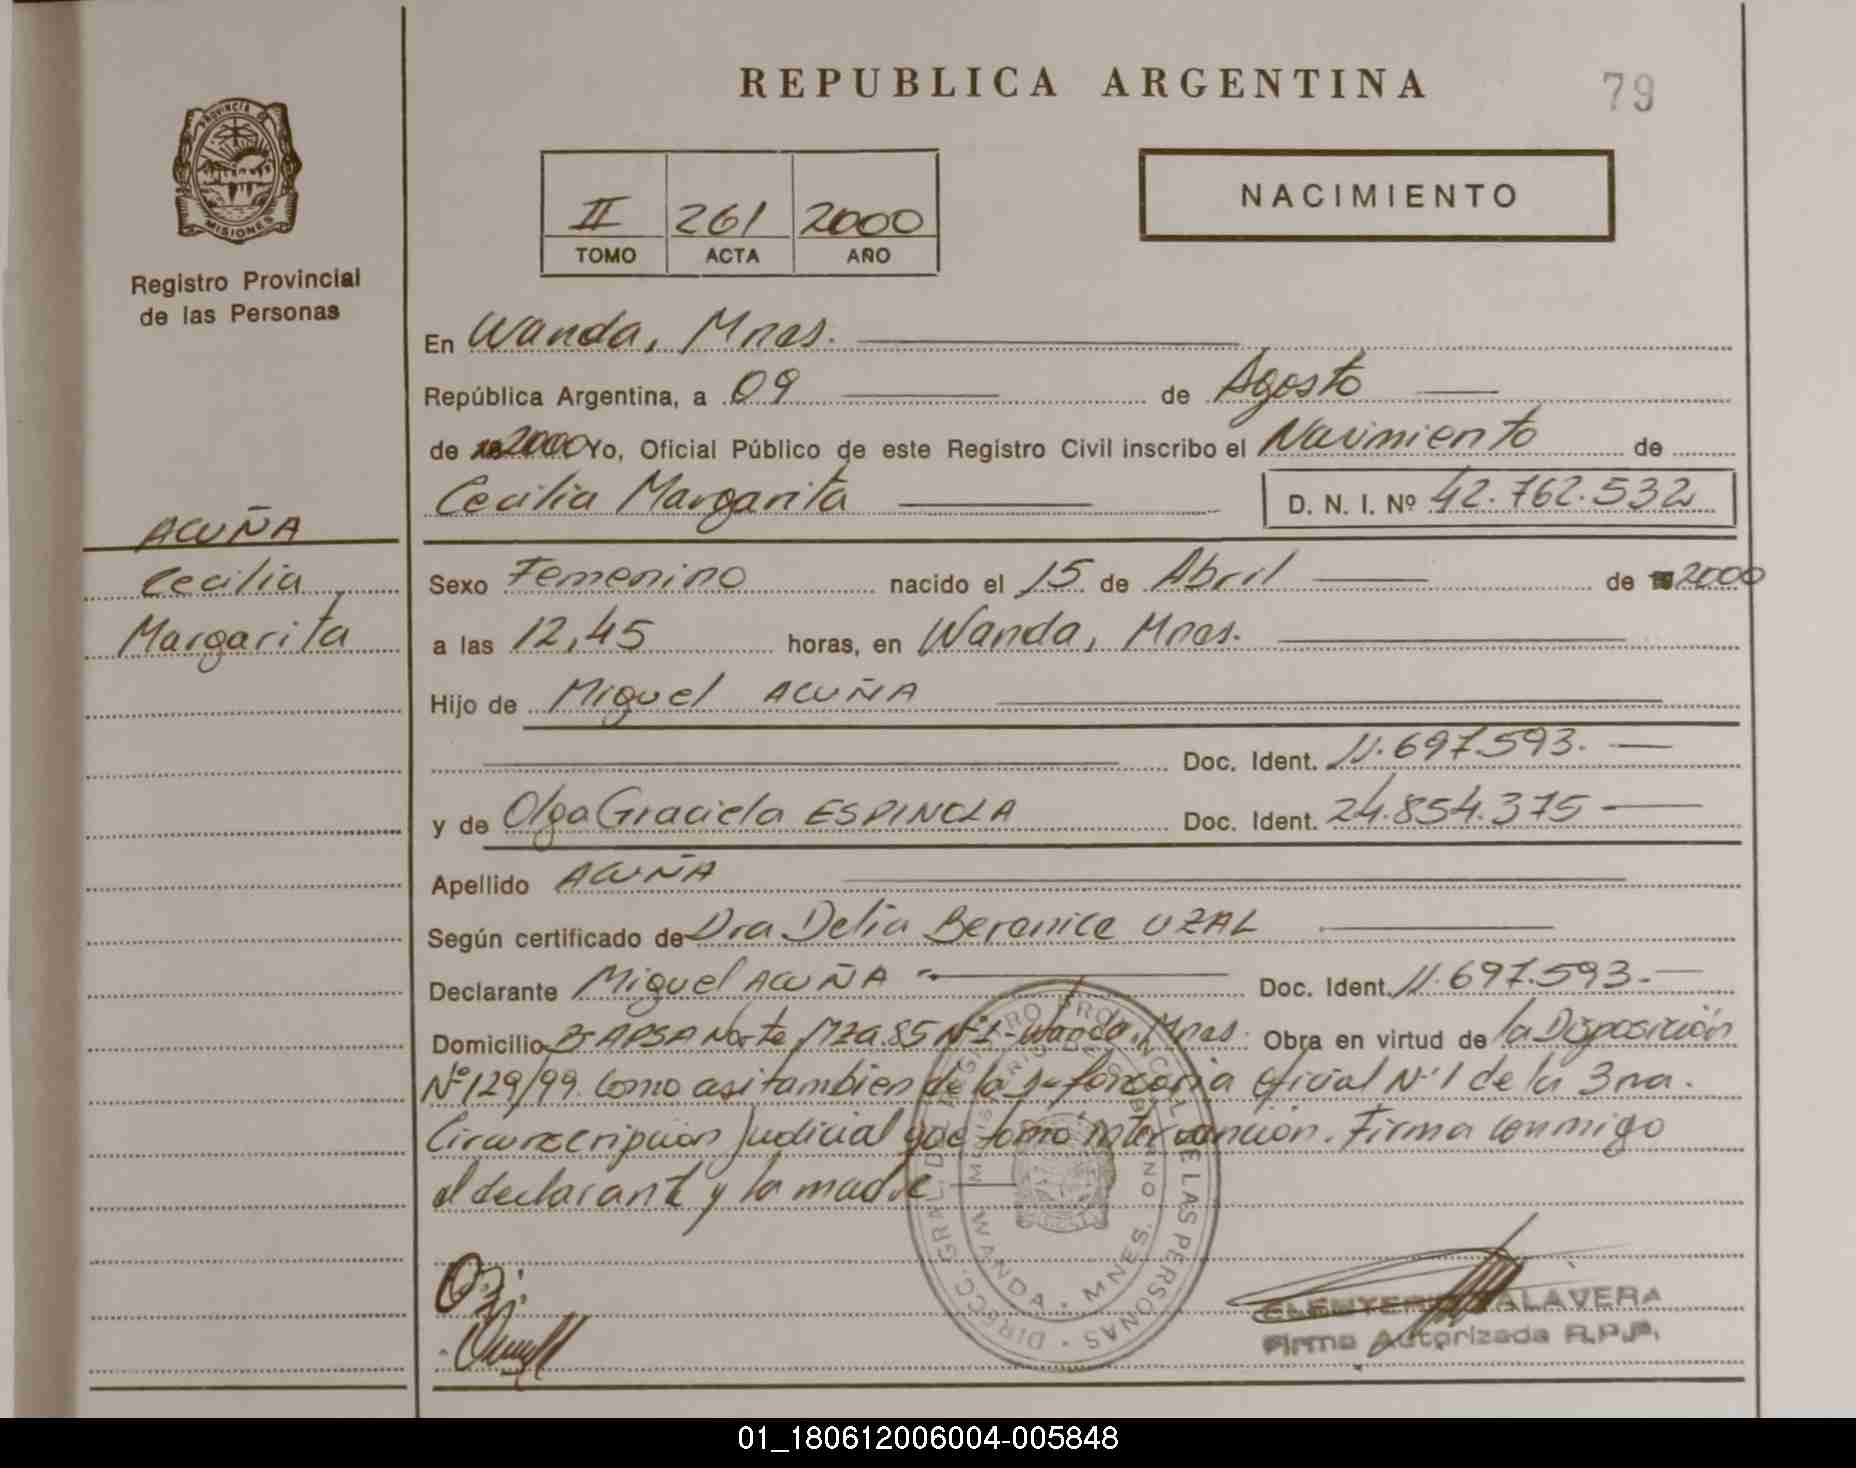 REPUBLICA ARGENTINA
79
PROVINCIA DE
MISIONES
Registro Provincial
de las Personas
NACIMIENTO
II 261 2000
TOMO ACTA AÑO
En Wanda, Mnes.
República Argentina, a 09 de Agosto
de 2000 Yo, Oficial Público de este Registro Civil inscribo el Nacimiento de
Cecilia Margarita D. N. I. Nº 42.762.532
ACUÑA
Cecilia
Margarita
Sexo Femenino nacido el 15 de Abril de 2000
a las 12,45 horas, en Wanda, Mnes.
Hijo de Miguel ACUÑA
Doc. Ident. 11.697.593.
y de Olga Graciela ESPINOLA Doc. Ident. 24.854.375
Apellido ACUÑA
Según certificado de Dra Delia Berenice UZAL
Declarante Miguel ACUÑA Doc. Ident. 11.697.593.
Domicilio Bº APSA Norte Mza. 85 Nº 1 - Wanda, Mnes. Obra en virtud de la Disposición
Nº 129/99. Como asi tambien de la oficial Nº 1 de la 3ra.
Circunscripción Judicial que tomo intervención. Firma conmigo
el declarante y la madre
DIRECC. GRAL. DEL REGISTRO PROVINCIAL DE LAS PERSONAS
MINISTERIO DE GOBIERNO
WANDA - MNES.
ELEUTERIO TALAVERA
Firma Autorizada R.P.P.
01_180612006004-005848